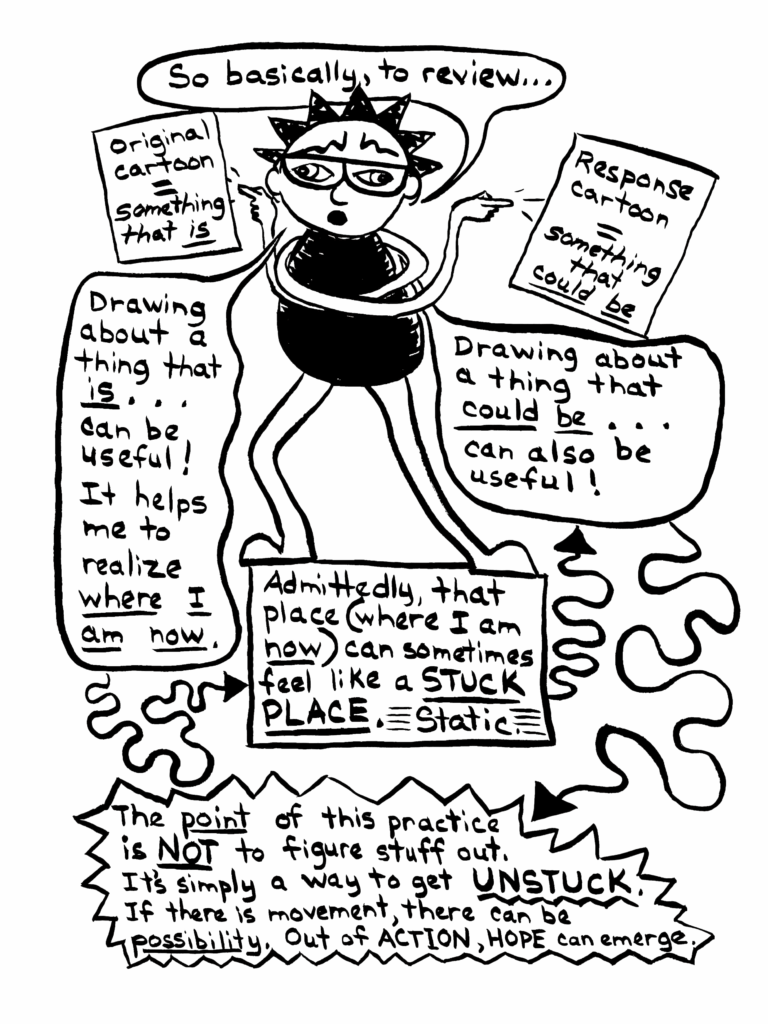 So basically, to review...
Original
cartoon
=
something
that is
Response
cartoon
=
something
that
could be
Drawing
about a
thing that
is...
can be
useful!
It helps
me to
realize
where I
am now.
Admittedly, that
place (where I am
now) can sometimes
feel like a STUCK
PLACE. Static.
Drawing about
a thing that
could be...
can also be
useful!
The point of this practice
is NOT to figure stuff out.
It's simply a way to get UNSTUCK.
If there is movement, there can be
possibility. Out of ACTION, HOPE can emerge.